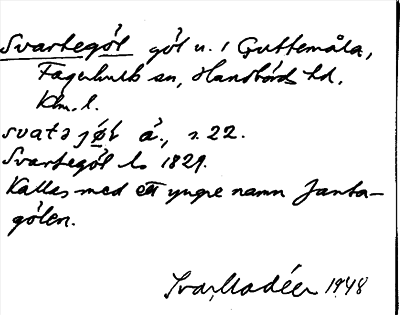 Svartegöl göl n. i Guttemåla,
Fagerhults sn, Handbörds hd,
Klm. l.
svatəjø̀l á., s. 22.
Svartegöl ls 1829.
Kallas med ett yngre namn Janta-
gölen.
Ivar Modéer 1948